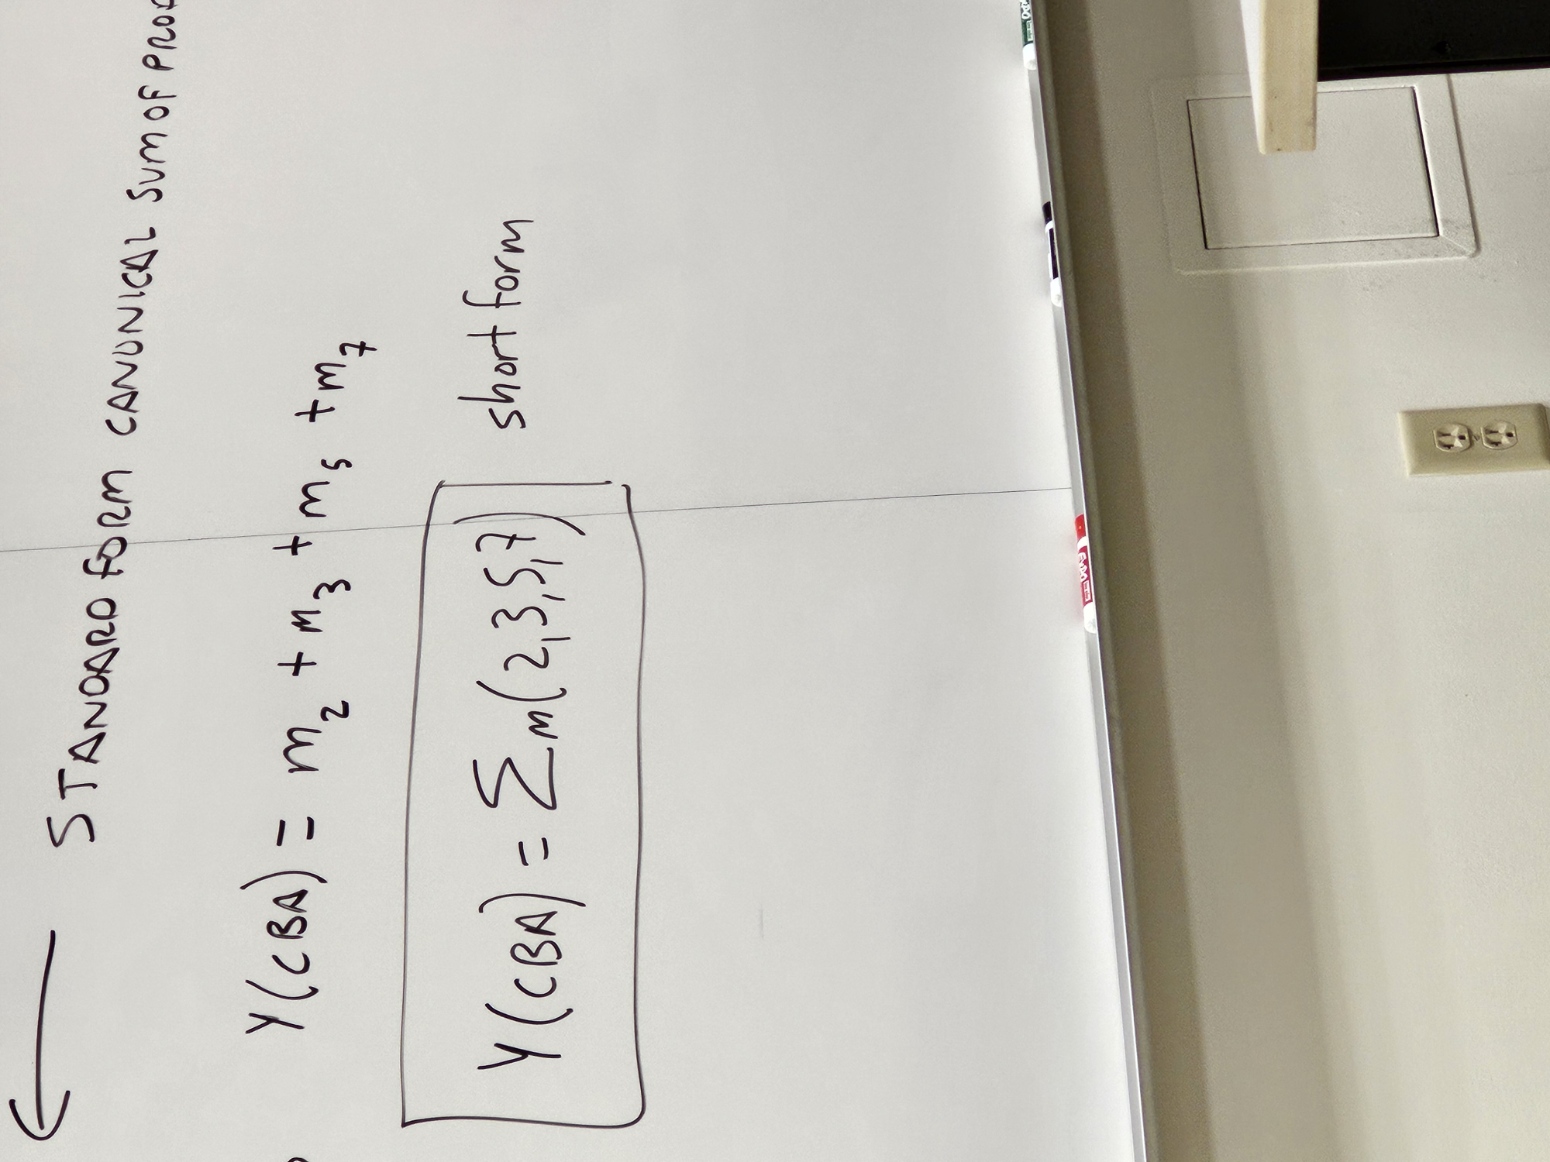 ← STANDARD FORM CANONICAL SUM OF PROD
Y(CBA) = m₂ + m₃ + m₅ + m₇
Y(CBA) = Σm(2,3,5,7) short form
EXPO